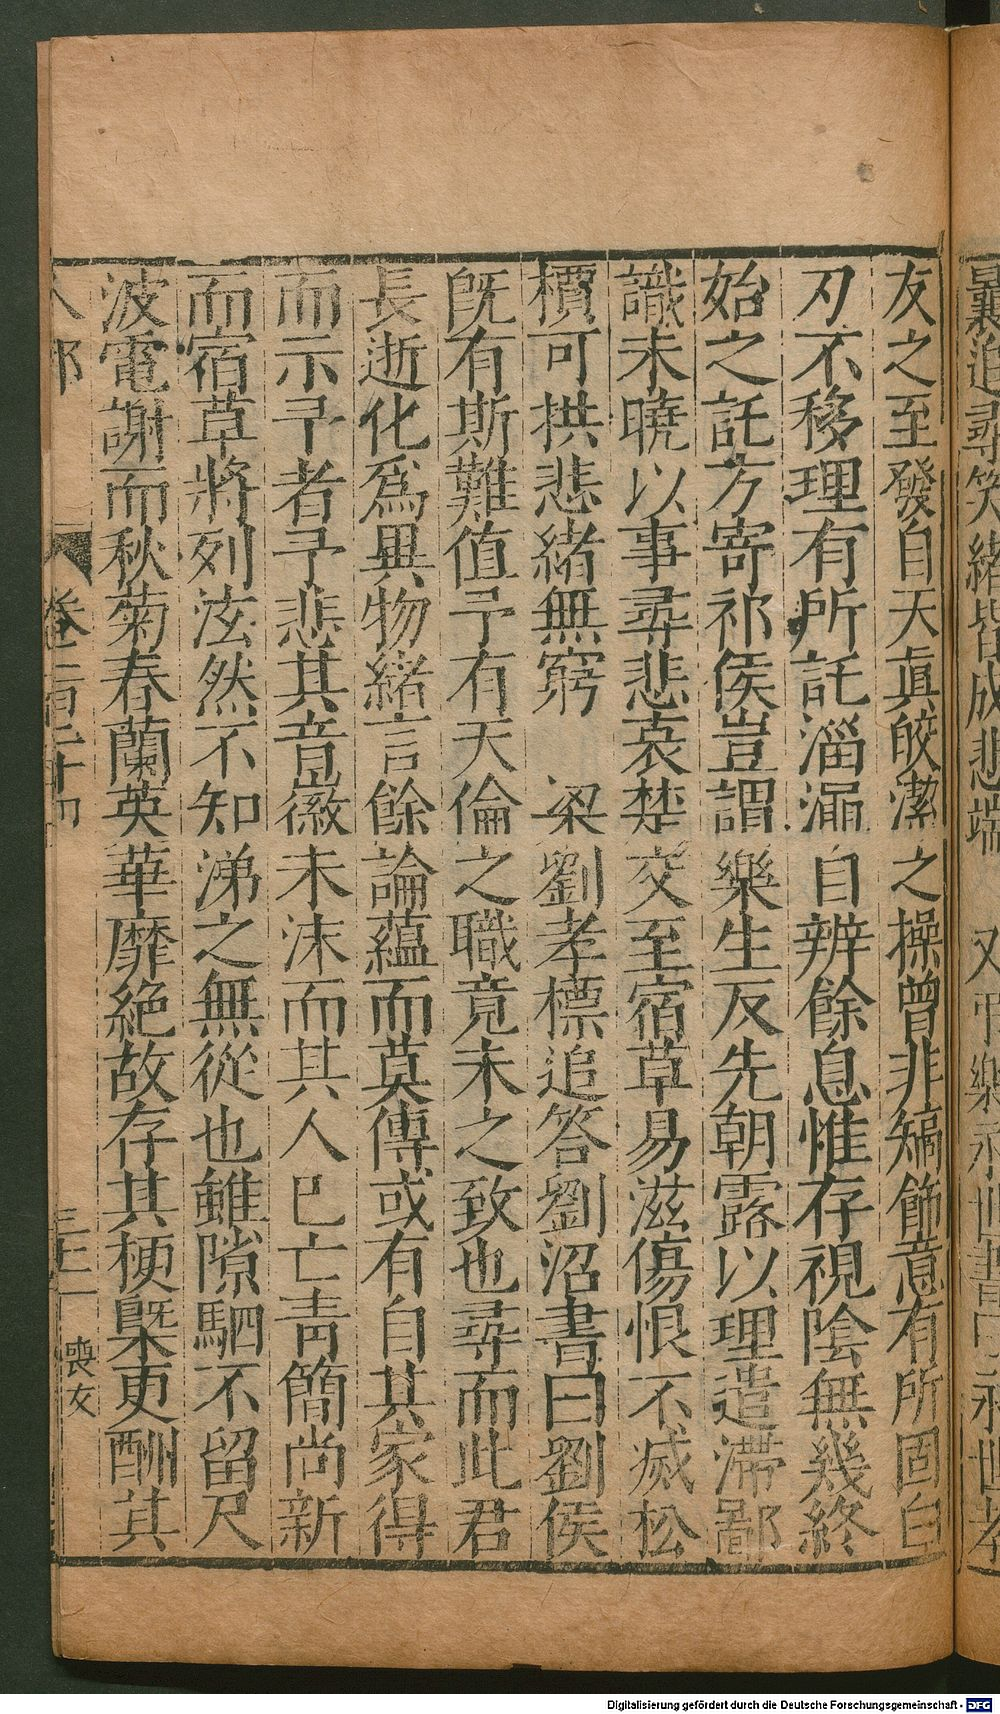 友之至發自天眞皎潔之操曾非矯飾意有所固白
刃不移理有所託淄澠自辨餘息惟存視陰無幾終
始之託方寄祁侯豈謂樂生反先朝露以理遣滯鄙
識未曉以事尋悲哀楚交至宿草易滋傷恨不滅松
檟可拱悲緒無窮　梁劉孝標追答劉沼書曰劉侯
旣有斯難値予有天倫之職竟未之致也尋而此君
長逝化爲異物緒言餘論蘊而莫傳或有自其家得
而示予者予悲其音徽未沫而其人已亡靑簡尚新
而宿草將列泫然不知涕之無從也雖隙駟不留尺
波電謝而秋菊春蘭英華靡絕故存其梗槩更酬其
人部　卷二百二十四　三十一　喪友
曩追尋笑緒皆成悲端　又
Digitalisierung gefördert durch die Deutsche Forschungsgemeinschaft - DFG